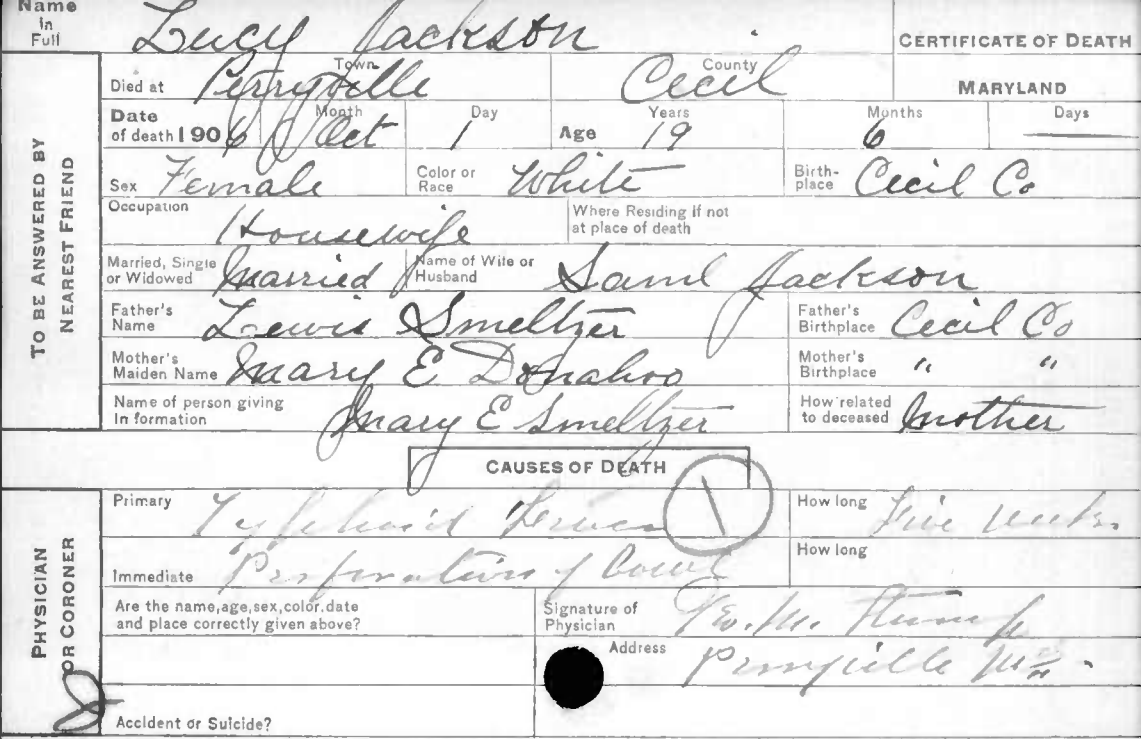 Name In Full Lucy Jackson CERTIFICATE OF DEATH
TO BE ANSWERED BY NEAREST FRIEND
Died at Perryville Town Cecil County MARYLAND
Date of death 1906 Month Oct Day 1 Age Years 19 Months 6 Days —
Sex Female Color or Race White Birth-place Cecil Co
Occupation Housewife Where Residing if not at place of death
Married, Single or Widowed Married Name of Wife or Husband Saml Jackson
Father's Name Lewis Smeltzer Father's Birthplace Cecil Co
Mother's Maiden Name Mary E Donahoo Mother's Birthplace " "
Name of person giving In formation Mary E Smeltzer How related to deceased Mother
CAUSES OF DEATH
PHYSICIAN OR CORONER
Primary Typhoid Fever 1 How long Five weeks
Immediate Perforation of Bowel How long
Are the name,age,sex,color.date and place correctly given above? Signature of Physician Geo. M. Stump
Address Perryville Md.
Accident or Suicide?